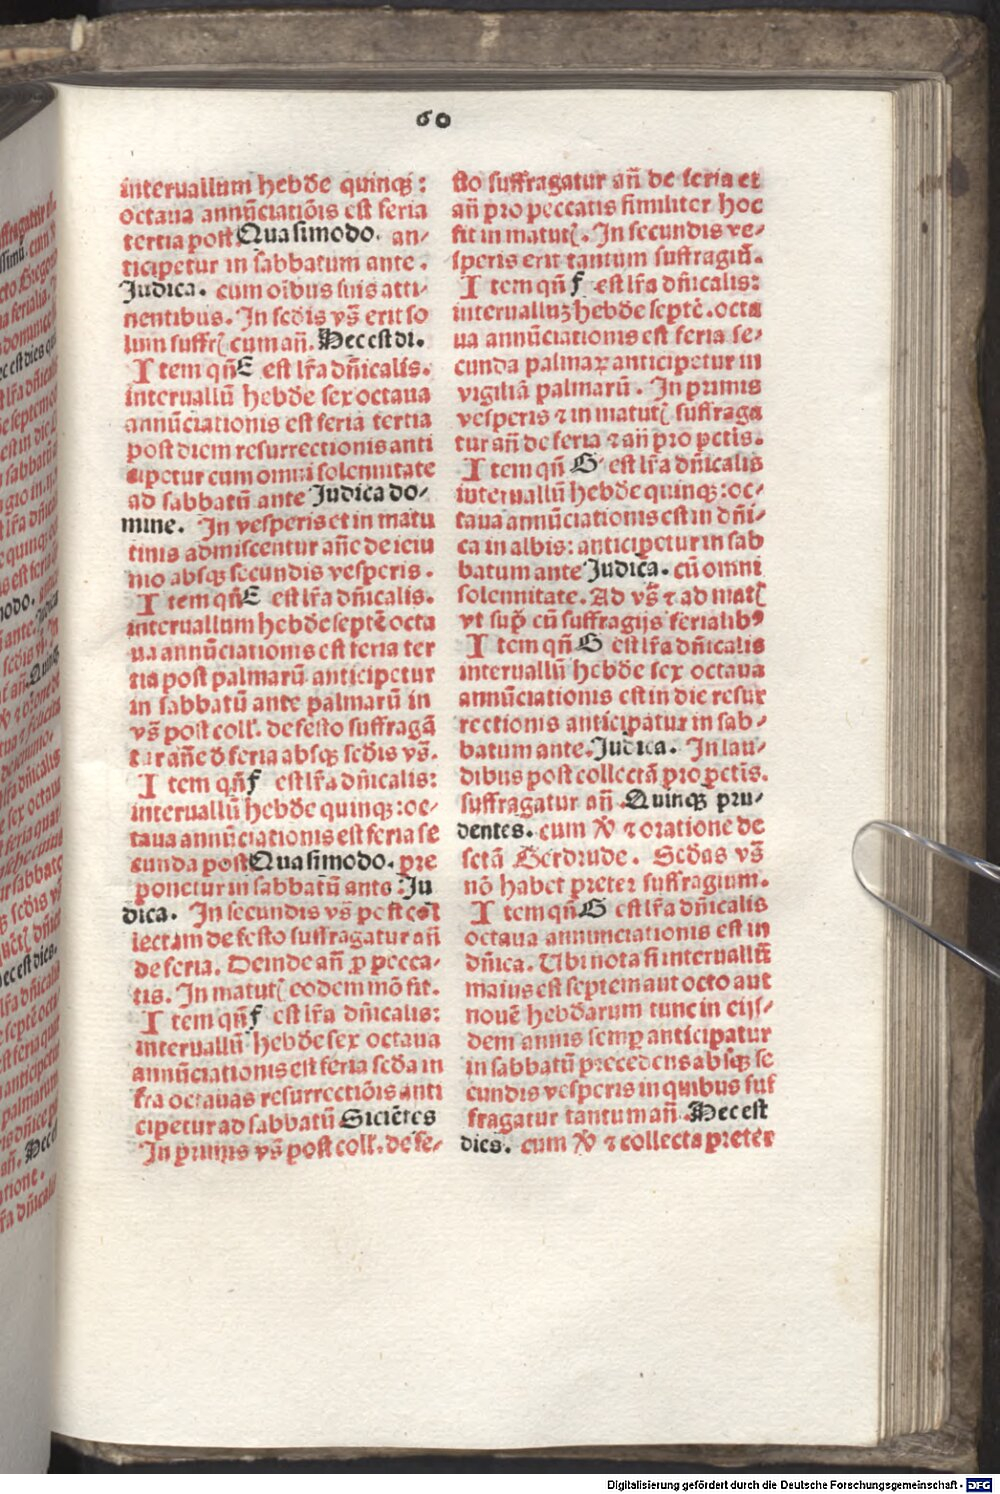 60
interuallum hebd̄e quinqȝ:
octaua annūciatiōis est feria
tertia post Quasimodo. an-
ticipetur in sabbatum ante.
Judica. cum oībus suis atti-
nentibus. In scd̄is vs̄ erit so
lum suffrꝭ cum an̄. Hec est di.
Item qn̄ E est lr̄a dn̄icalis.
interuallū hebd̄e sex octaua
annūciationis est feria tertia
post diem resurrectionis anti
cipetur cum omni solennitate
ad sabbatū ante Judica do-
mine. In vesperis et in matu
tinis admiscentur an̄e de ieiu
nio absqȝ secundis vesperis.
Item qn̄ E est lr̄a dn̄icalis.
interuallum hebd̄e septē octa
ua annūciationis est feria ter
tia post palmarū anticipetur
in sabbatū ante palmarū in
vs̄ post coll. de festo suffragā
tur an̄e d̄ feria absqȝ scd̄is vs̄.
Item qn̄ f est lr̄a dn̄icalis:
interuallū hebd̄e quinqȝ: oc-
taua annūciationis est feria se
cunda post Quasimodo. pre
ponetur in sabbatū ante Ju
dica. In secundis vs̄ post col
lectam de festo suffragatur an̄
de feria. Deinde an̄ ꝓ pecca-
tis. In matutꝭ eodem mō fit.
Item qn̄ f est lr̄a dn̄icalis:
interuallū hebd̄e sex octaua
annūciationis est feria scd̄a in
fra octauas resurrectiōis anti
cipetur ad sabbatū Sicientes
In primis vs̄ post coll. de fe-
sto suffragatur an̄ de feria et
an̄ pro peccatis similiter hoc
fit in matutꝭ. In secundis ve-
speris erit tantum suffragiū.
Item qn̄ f est lr̄a dn̄icalis:
interualluȝ hebd̄e septē. octa
ua annūciationis est feria se-
cunda palmaꝝ anticipetur in
vigilia palmarū. In primis
vesperis ⁊ in matutꝭ suffraga
tur an̄ de feria ⁊ an̄ pro pctis̄.
Item qn̄ G est lr̄a dn̄icalis
interuallū hebd̄e quinqȝ: oc-
taua annūciationis est in dn̄i-
ca in albis: anticipetur in sab
batum ante Judica. cū omni
solennitate. Ad vs̄ ⁊ ad matꝭ
vt supͣ cū suffragijs ferialibꝰ
Item qn̄ G est lr̄a dn̄icalis
interuallū hebd̄e sex octaua
annūciationis est in die resur
rectionis anticipatur in sab-
batum ante. Judica. In lau-
dibus post collectā pro pctis̄.
suffragatur an̄ Quinqȝ pru-
dentes. cum ℣ ⁊ oratione de
sctā Gerdrude. Scd̄as vs̄
nō habet preter suffragium.
Item qn̄ G est lr̄a dn̄icalis
octaua annunciationis est in
dn̄ica. Ubi nota si interuallū
maius est septem aut octo aut
nouē hebdarum tunc in eijs-
dem annis semꝑ anticipatur
in sabbatū precedens absqȝ se
cundis vesperis in quibus suf
fragatur tantum an̄. Hec est
dies. cum ℣ ⁊ collecta preter
Digitalisierung gefördert durch die Deutsche Forschungsgemeinschaft - DFG